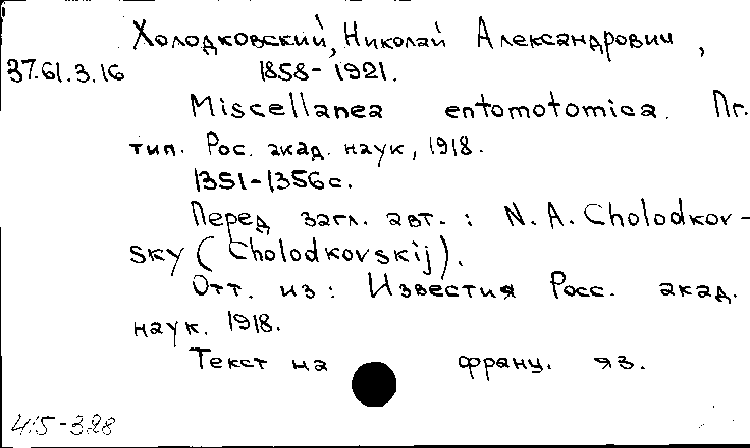 Холодковский, Николай Александрович,
37.61.3.16 1858-1921.
Miscellanea entomotomica. Пг.
тип. Рос. акад. наук, 1918.
1351-1356 с.
Перед загл. авт.: N. A. Cholodkov-
sky (Cholodkovskij).
Отт. из: Известия Росс. акад.
наук. 1918.
Текст на франц. яз.
415-328